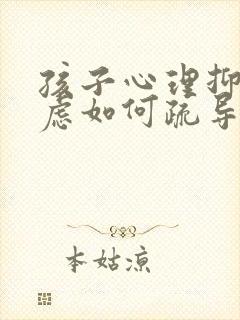 孩子心理抑
虑如何疏导
本姑凉